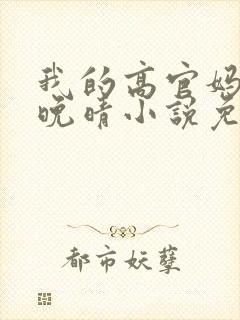 我的高官妈
晚晴小说免
都市妖孽